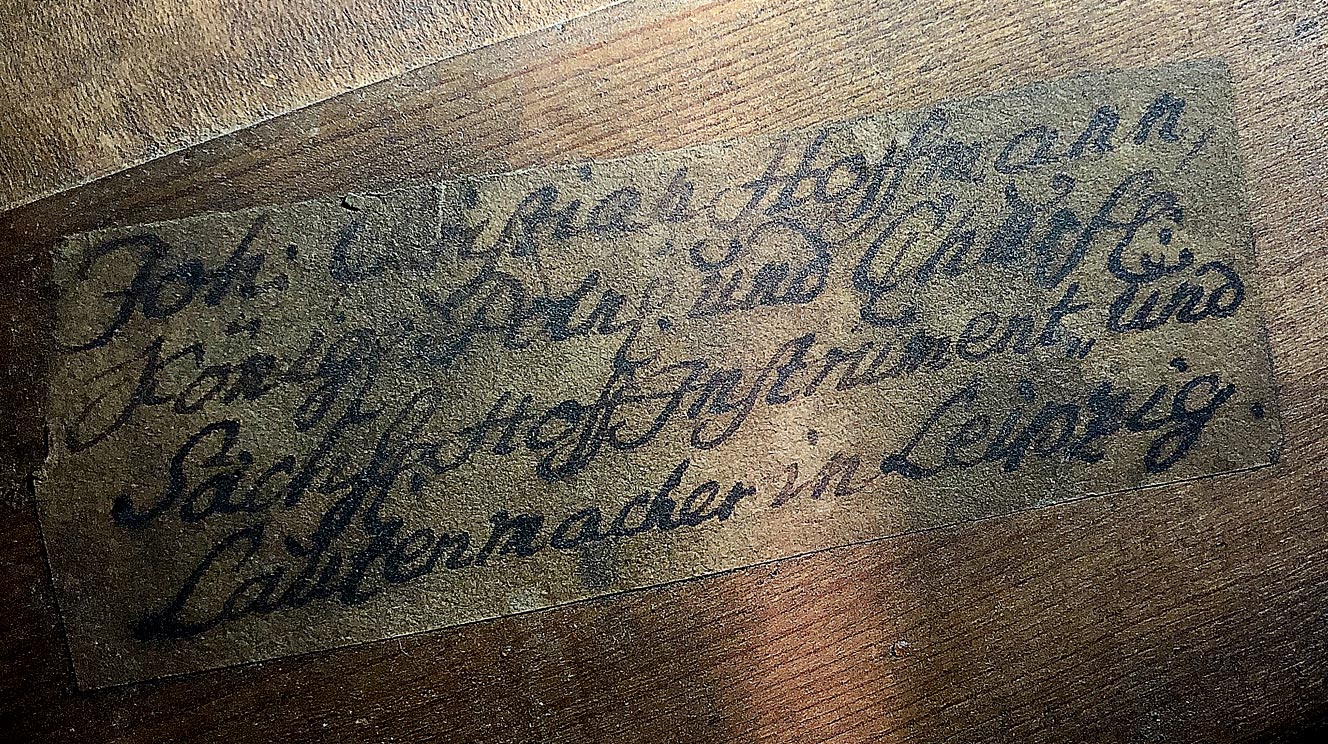 Joh: Christian Hoffmann,
Königl: Pohlñ. und Chürfl:
Sächß. Hoff Instrument„ und
Lautenmacher in Leipzig.